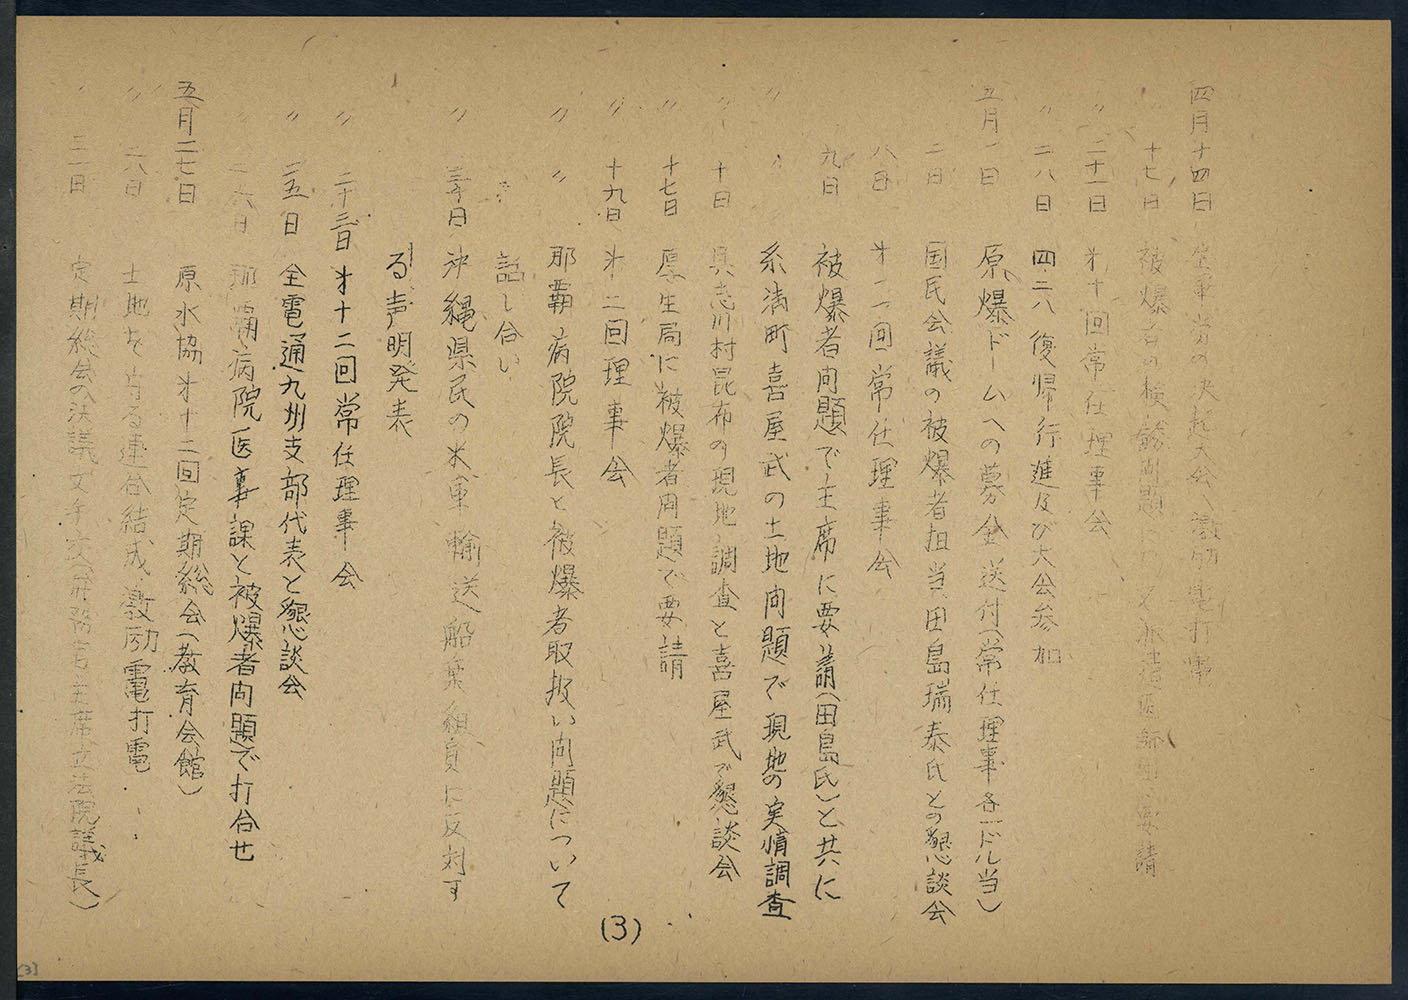 四月十四日 決起大会へ激励電打電
〃 十七日 被爆者の検診問題 要請
〃 二十一日 オ十回常任理事会
〃 二八日 四・二八復帰行進及び大会参加
五月一日 原爆ドームへの募金送付(常任理事各一ドル当)
〃 二日 国民会議の被爆者担当田島瑞泰氏との懇談会
〃 八日 オ十一回常任理事会
〃 九日 被爆者問題で主席に要請(田島氏)と共に
〃 〃 糸満町喜屋武の土地問題で現地の実情調査
〃 十日 具志川村昆布の現地調査と喜屋武で懇談会
〃 十七日 厚生局に被爆者問題で要請
〃 十九日 オ二回理事会
〃 〃 那覇病院院長と被爆者取扱い問題について
話し合い
〃 二十日 沖縄県民の米軍輸送船乗組員に反対す
る声明発表
〃 二十三日 オ十二回常任理事会
〃 二五日 全電通九州支部代表と懇談会
〃 二六日 那覇病院医事課と被爆者問題で打合せ
五月二七日 原水協オ十二回定期総会(教育会館)
〃 二八日 土地を守る連合結成激励電打電
〃 三一日 定期総会の決議文手交(主席立法院議長)
(3)
[3]